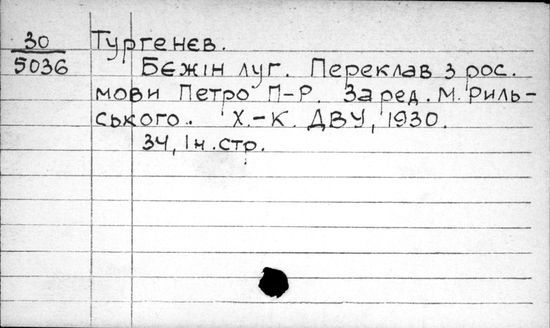 30
5036
Тургенєв.
Бєжін луг. Переклав з рос.
мови Петро П-Р. За ред. М. Риль-
ського. Х.-К. ДВУ, 1930.
34, Ін. стр.